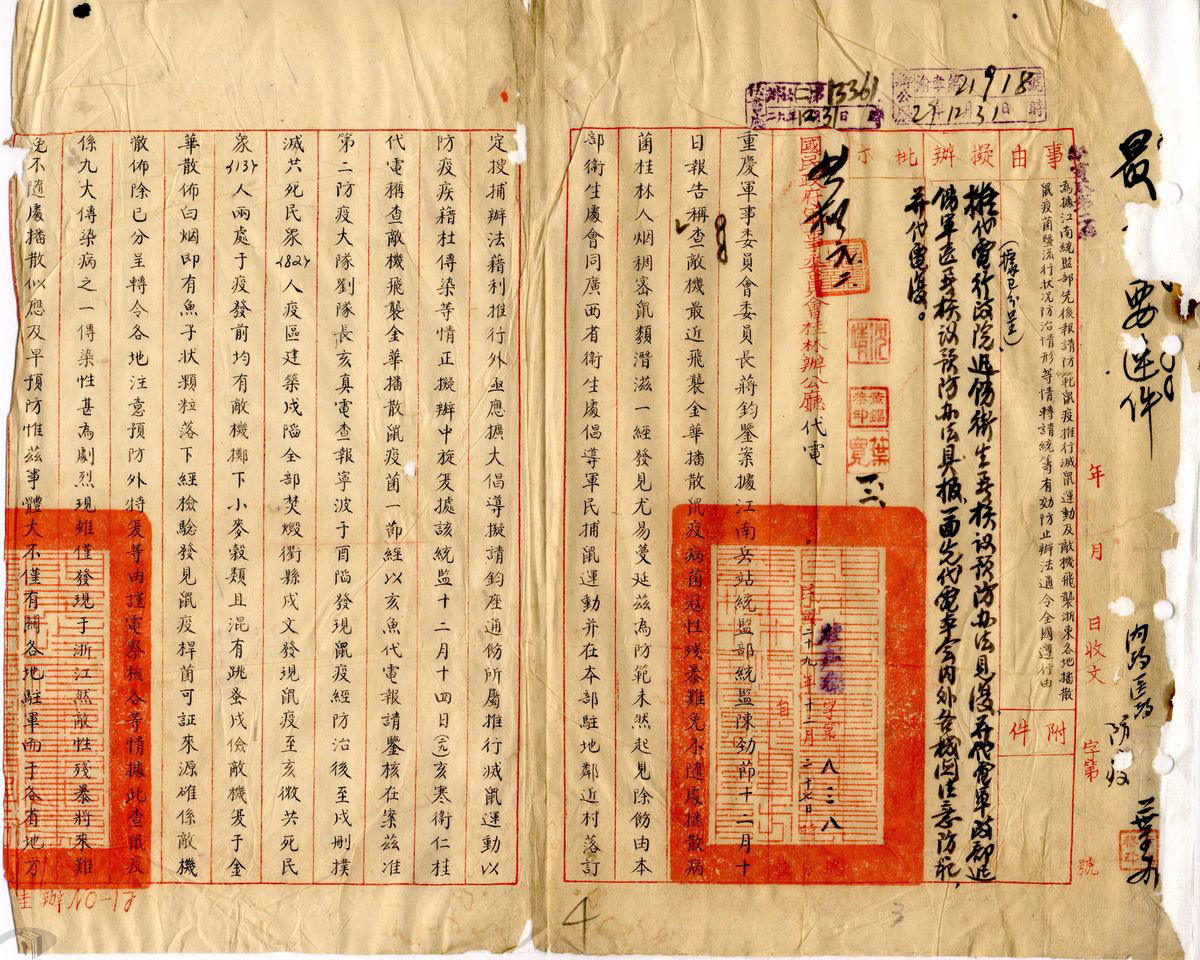 最要速件
年 月 日收文 字第 號
事由擬辦批示
附件
為據江南統監部先後報請防範鼠疫推行滅鼠運動及敵機飛襲浙東各地播散
鼠疫菌暨流行狀況防治情形等情轉請統籌有効防止辦法通令全國遵行由
(據已分呈)
擬代電行政院迅飭衛生署核議預防办法見復并代電軍政部迅
飭軍医署核议预防办法具報一面先代電本会內外各機関注意防範,
并代電復。
國民政府軍事委員會桂林辦公廳代電
字第八三八號
民國二十九年十二月二十七日 時 自 發
重慶軍事委員會委員長蔣鈞鑒案據江南兵站統監部統監陳勁節十二月十
日報告稱查敵機最近飛襲金華播散鼠疫病菌寇性残暴難免不隨處播散病
菌桂林人烟稠密鼠類潛滋一經發見尤易蔓延茲為防範未然起見除飭由本
部衛生處會同廣西省衛生處倡導軍民捕鼠運動并在本部駐地鄰近村落訂
定搜捕辦法藉利推行外亟應擴大倡導擬請鈞座通飭所屬推行滅鼠運動以
防疫疾藉杜傳染等情正擬辦中旋復據該統監十二月十四日(元)亥寒衛仁桂
代電稱查敵機飛襲金華播散鼠疫菌一節經以亥魚代電報請鑒核在案茲准
第二防疫大隊劉隊長亥真電查報寧波于酉陷發現鼠疫經防治後至戌刪撲
滅共死民眾(82)人疫區建築戌陷全部焚燬衢縣戌文發現鼠疫至亥微共死民
眾(13)人兩處于疫發前均有敵機擲下小麥穀類且混有跳蚤戌儉敵機復于金
華散佈白烟即有魚子狀顆粒落下經檢驗發見鼠疫桿菌可証來源確係敵機
散佈除已分呈轉令各地注意預防外特復等由謹電察核各等情據此查鼠疫
係九大傳染病之一傳染性甚為劇烈現雖僅發現于浙江然敵性残暴將來難
免不隨處播散似應及早預防惟茲事體大不僅有關各地駐軍而于各省地方